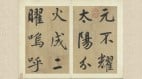 元不耀
太陽分
火成二
曜嗚呼